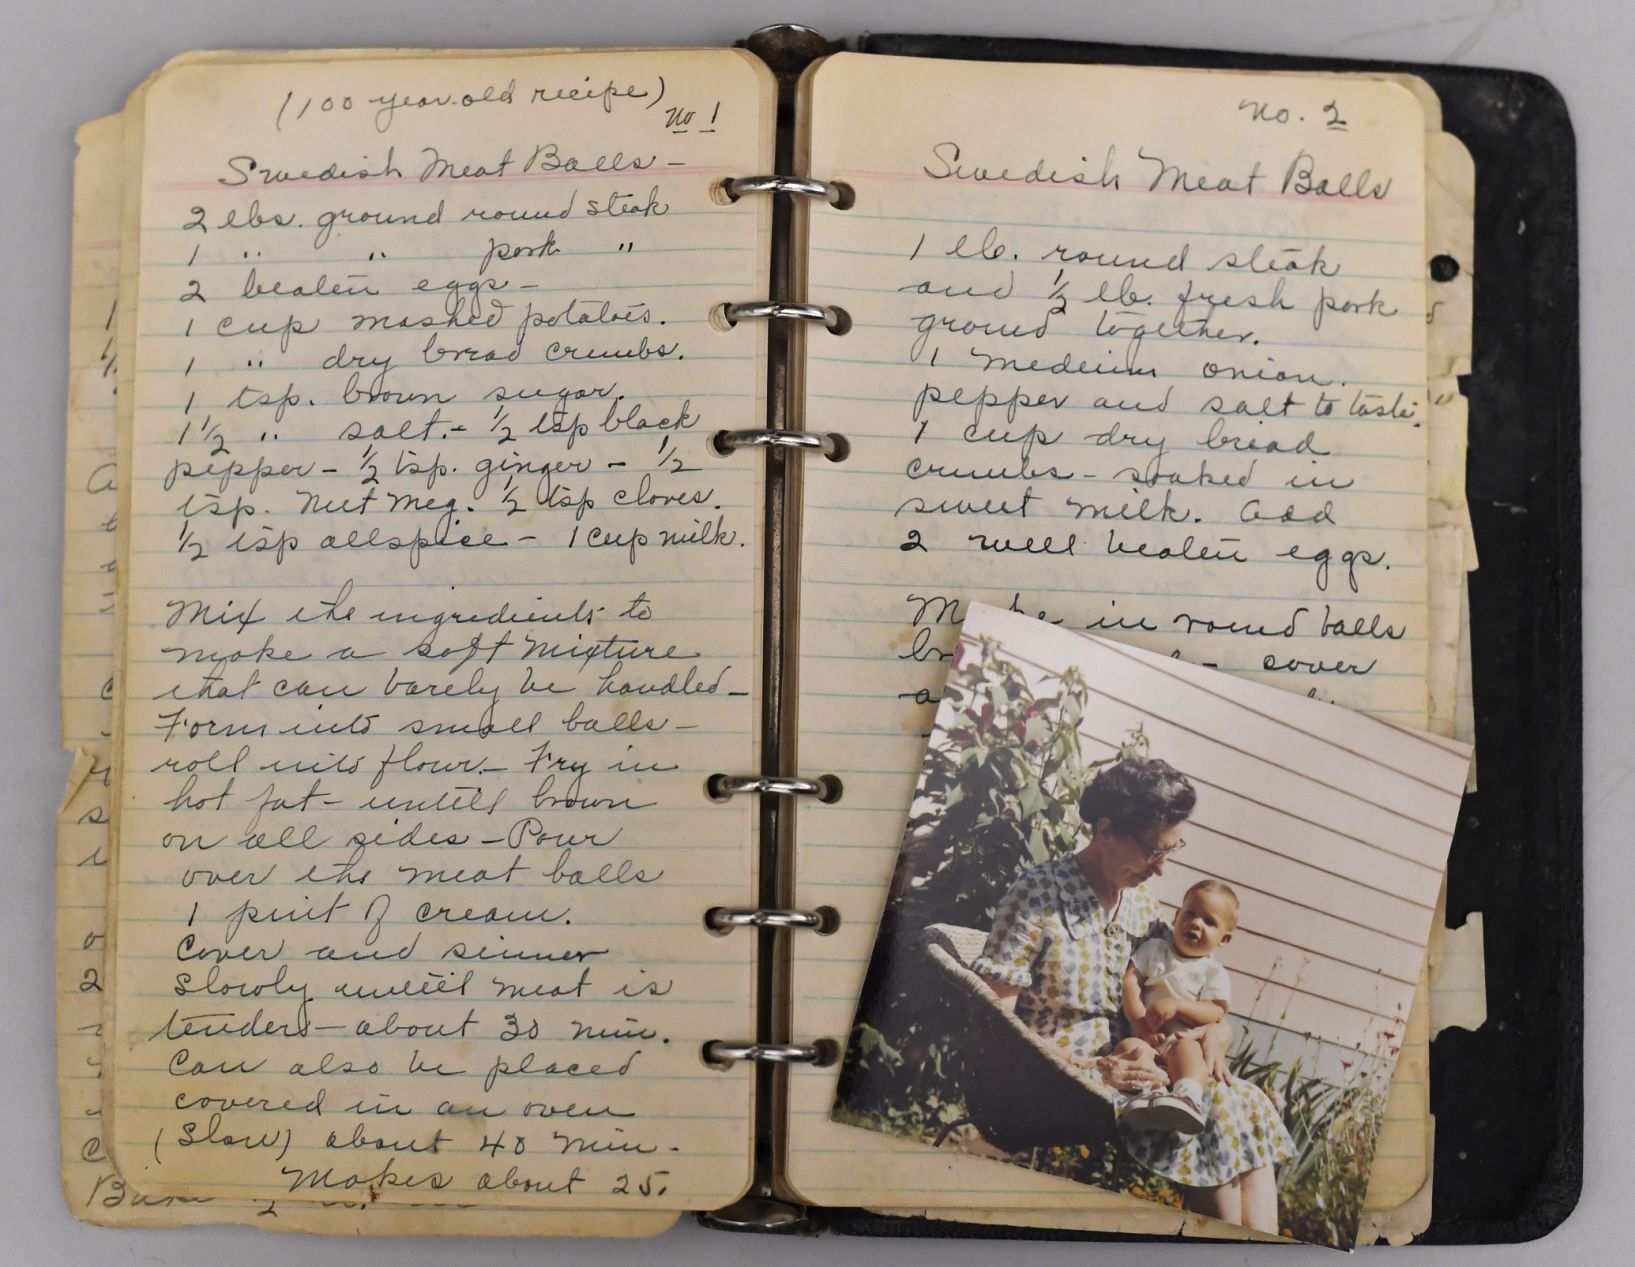 (100 year old recipe)
No 1
Swedish Meat Balls -
2 lbs. ground round steak
1 " " pork "
2 beaten eggs -
1 cup mashed potatoes.
1 " dry bread crumbs.
1 tsp. brown sugar.
1 1/2 " salt. - 1/2 tsp black
pepper - 1/2 tsp. ginger - 1/2
tsp. Nut Meg. 1/2 tsp cloves.
1/2 tsp allspice - 1 cup milk.
Mix the ingredients to
make a soft mixture
that can barely be handled -
Form into small balls -
roll into flour. - Fry in
hot fat - untill brown
on all sides - Pour
over the meat balls
1 pint of cream.
Cover and simmer
slowly untill meat is
tender - about 30 min.
Can also be placed
covered in an oven
(Slow) about 40 min -
Makes about 25.
No. 2
Swedish Meat Balls
1 lb. round steak
and 1/2 lb. fresh pork
ground together.
1 medium onion.
pepper and salt to taste.
1 cup dry bread
crumbs - soaked in
sweet milk. Add
2 well beaten eggs.
in round balls
cover